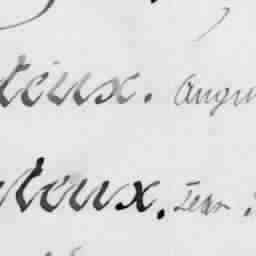 teux. Augu
teux. Jean